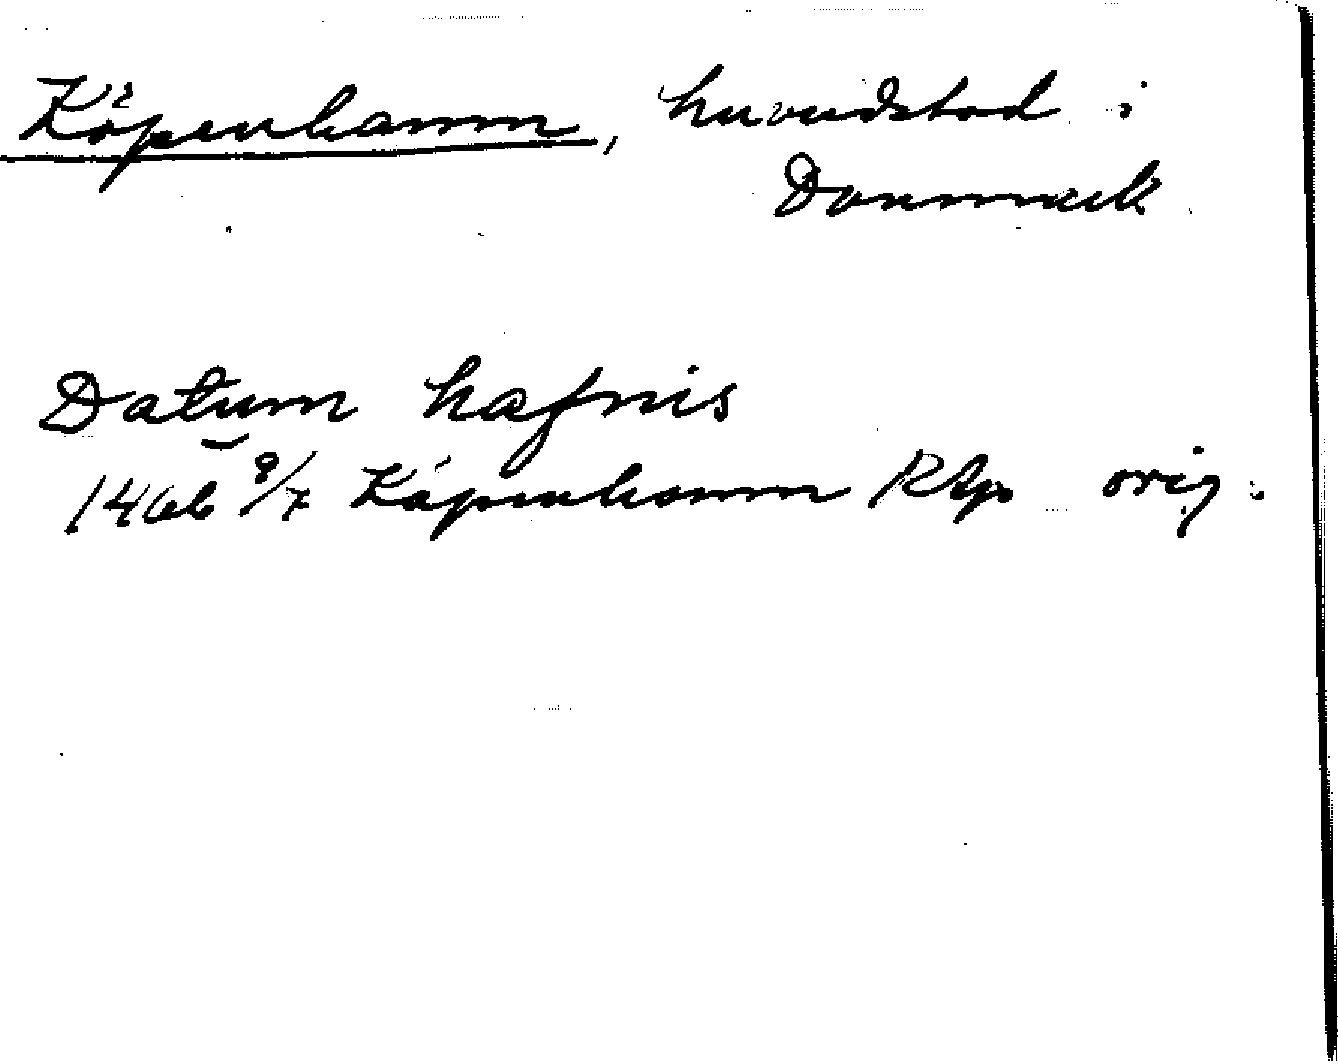 Köpenhamn, huvudstad i
Danmark
Datum hafnis
1466 9/7 Köpenhamn Rtp orig.